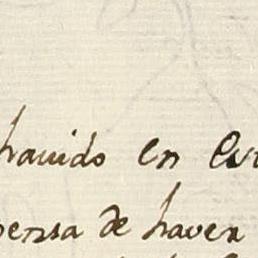 havido en est
pensa de haver